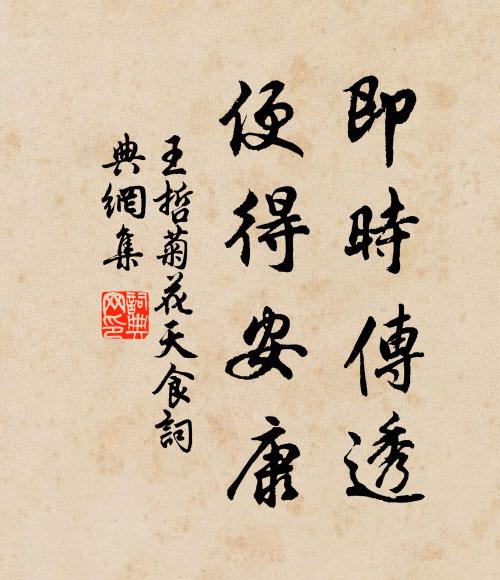 即時傳透
便得安康
王哲菊花天食詞
典網集
詞典網印